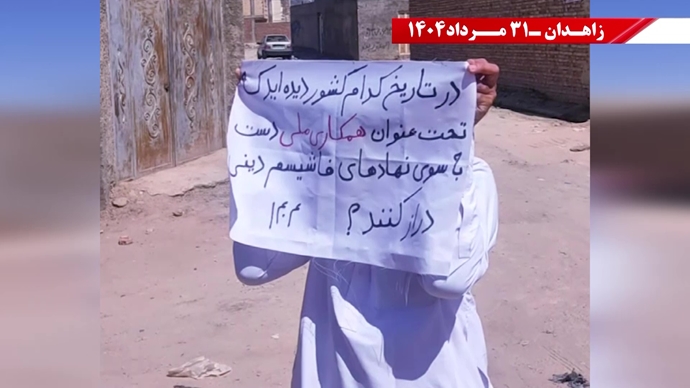 زاهدان ـ ۳۱ مـرداد ۱۴۰۴
در تاریخ کدام کشور دیده اید که
تحت عنوان همکاری ملی دست
به سوی نهادهای فاشیسم دینی
دراز کنند؟ م ب م ا